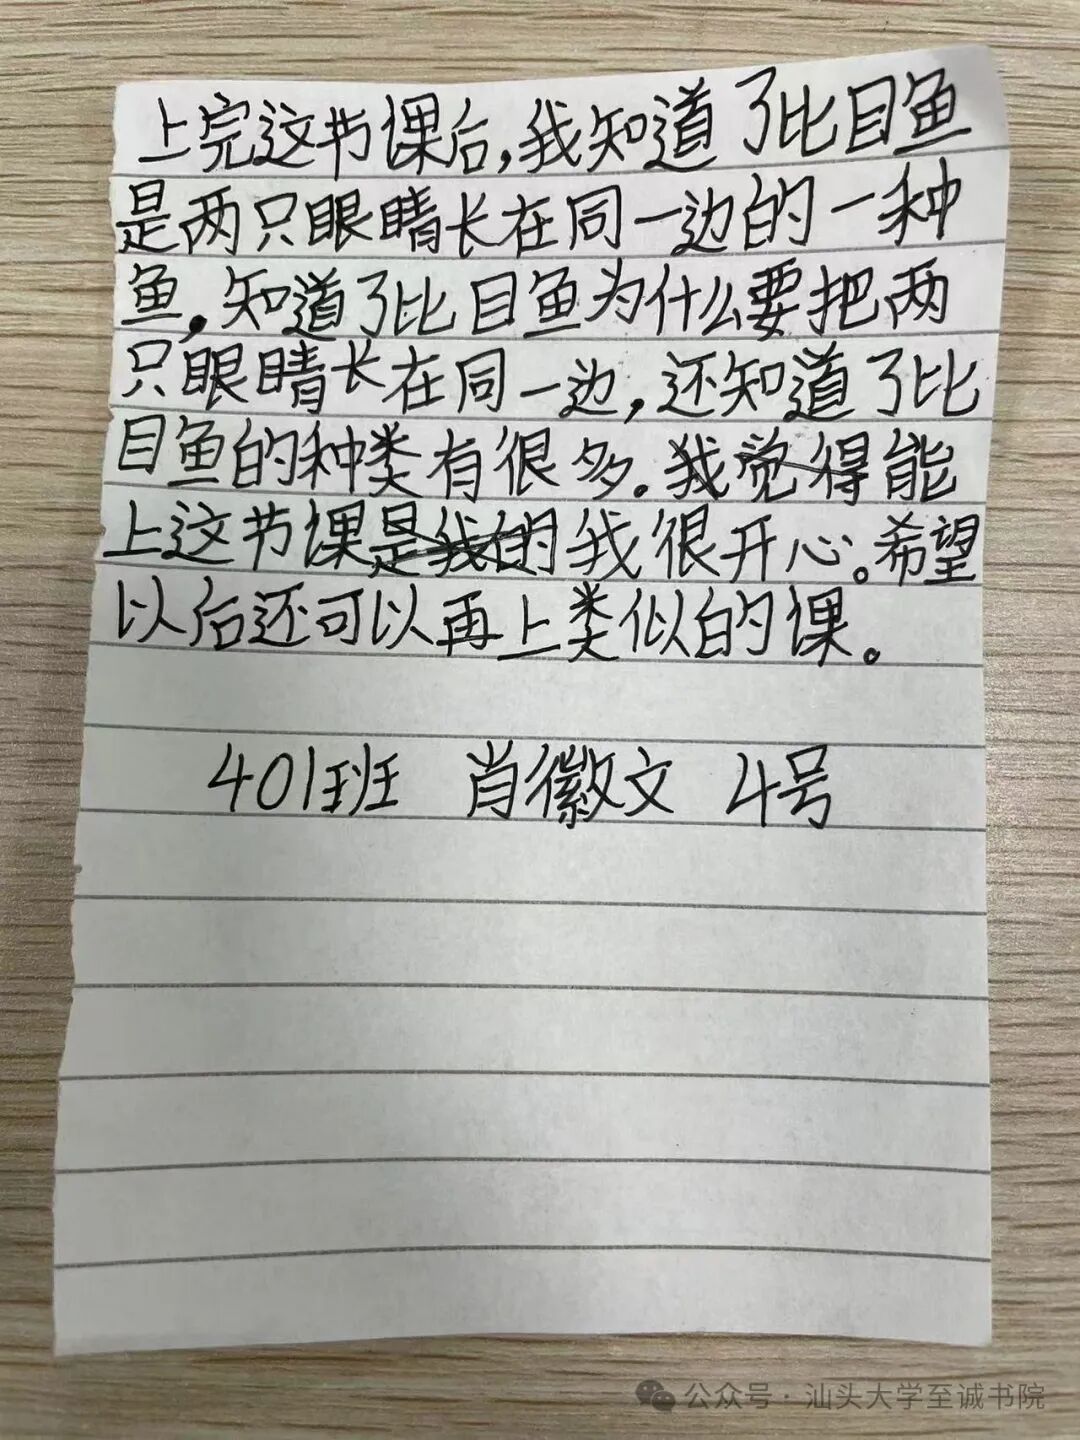 上完这节课后，我知道了比目鱼
是两只眼睛长在同一边的一种
鱼，知道了比目鱼为什么要把两
只眼睛长在同一边，还知道了比
目鱼的种类有很多。我觉得能
上这节课是我的我很开心。希望
以后还可以再上类似的课。
401班 肖徽文 4号
公众号·汕头大学至诚书院